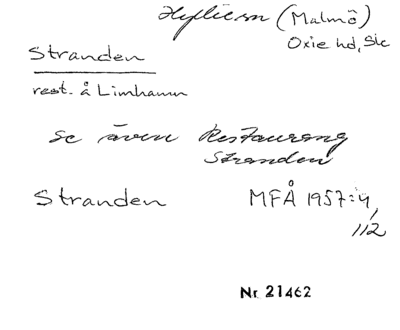 Hyllie sn (Malmö)
Oxie hd, Sk
Stranden
rest. å Limhamn
se även Restaurang
Stranden
Stranden MFÅ 1957:4,
112
Nr 21462